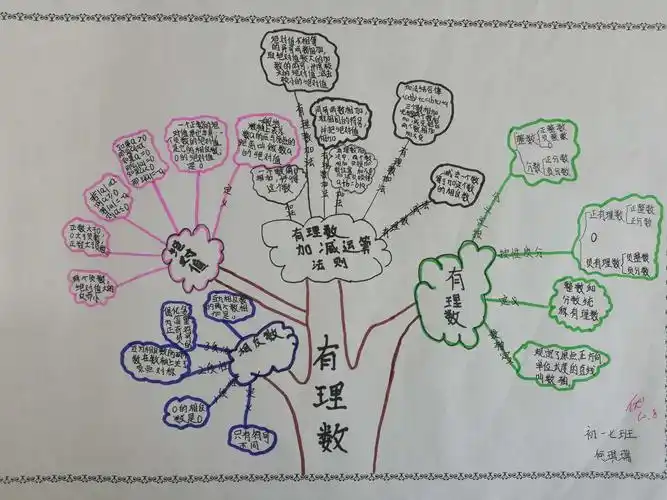 绝对值不相等
的异号两数相加,
取绝对值较大的加
数的符号,并用较
大的绝对值减去
较小的绝对值
有理数加法
同号两数相加
取相同的符号
并把绝对值
相加
加法结合律
三个数相加
有理数加法
减去一个数
等于加这个数
的相反数
有理数减法
一个数同0
相加,仍得
这个数
有理数
加减运算
法则
一个正数的绝
对值是它本身
负数的绝对值
是它的相反数
0的绝对值
是0
数轴上表示
数a的点与原点的
距离叫做数a
的绝对值
定义
正数大于0
0大于负数
正数大于负数
两个负数,
绝对值大的
反而小
绝对值
互为相反数
的两个数相
加是0
相反数
互为相反数的两
数在数轴上关于
原点对称
0的相反
数是0
只有符号
不同
整数
正整数
0
负整数
分数
正分数
负分数
按定义分
正有理数
正整数
正分数
0
负有理数
负整数
负分数
按性质分
有理数
定义
整数和
分数统
称有理数
数轴
规定了原点正方向
单位长度的直线
叫数轴
有理数
初一七班